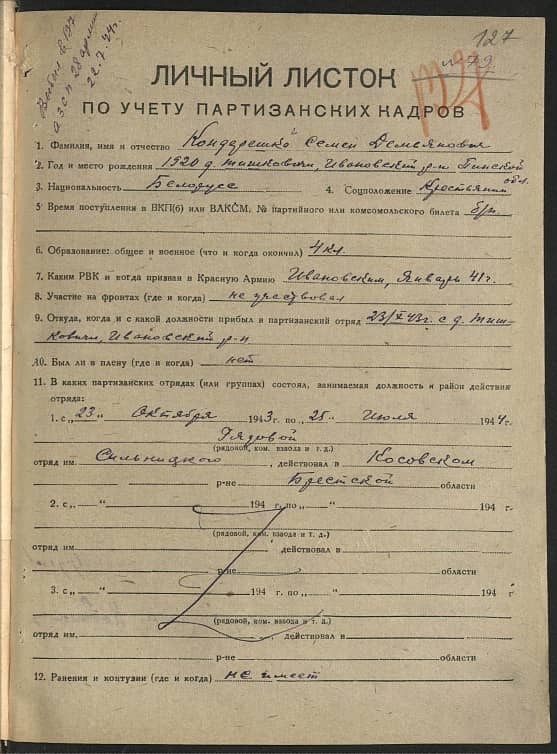 127
№ 79
Выбыл в 197
АЗСП 28 армии
22.7.44г.
ЛИЧНЫЙ ЛИСТОК
ПО УЧЕТУ ПАРТИЗАНСКИХ КАДРОВ
1. Фамилия, имя и отчество Кондарешко Семен Демьянович
2. Год и место рождения 1920 д. Тишковичи, Ивановский р-н Пинской обл.
3. Национальность Белорусс 4. Соцположение Крестьянин
5 Время поступления в ВКП(б) или ВЛКСМ, № партийного или комсомольского билета б/п.
6. Образование: общее и военное (что и когда окончил) 4 кл.
7. Каким РВК и когда призван в Красную Армию Ивановским, Январь 41г.
8. Участие на фронтах (где и когда) не участвовал
9. Откуда, когда и с какой должности прибыл в партизанский отряд 23/X 43г. с д. Тиш-
ковичи, Ивановский р-н
10. Был ли в плену (где и когда) нет
11. В каких партизанских отрядах (или группах) состоял, занимаемая должность и район действия
отряда:
1. с „23„ Октября 1943 г. по „25„ Июля 1944 г.
Рядовой
(рядовой, ком. взвода и т. д.)
отряд им. Сильницкого, действовал в Косовском
р-не Брестской области
2. с „ “ 194 г. по „ “ 194 г.
(рядовой, ком. взвода и т. д.)
отряд им. действовал в
р-не области
3. с „ “ 194 г. по „ “ 194 г
(рядовой, ком. взвода и т. д.)
отряд им. , действовал в
р-не области
12. Ранения и контузии (где и когда) не имеет